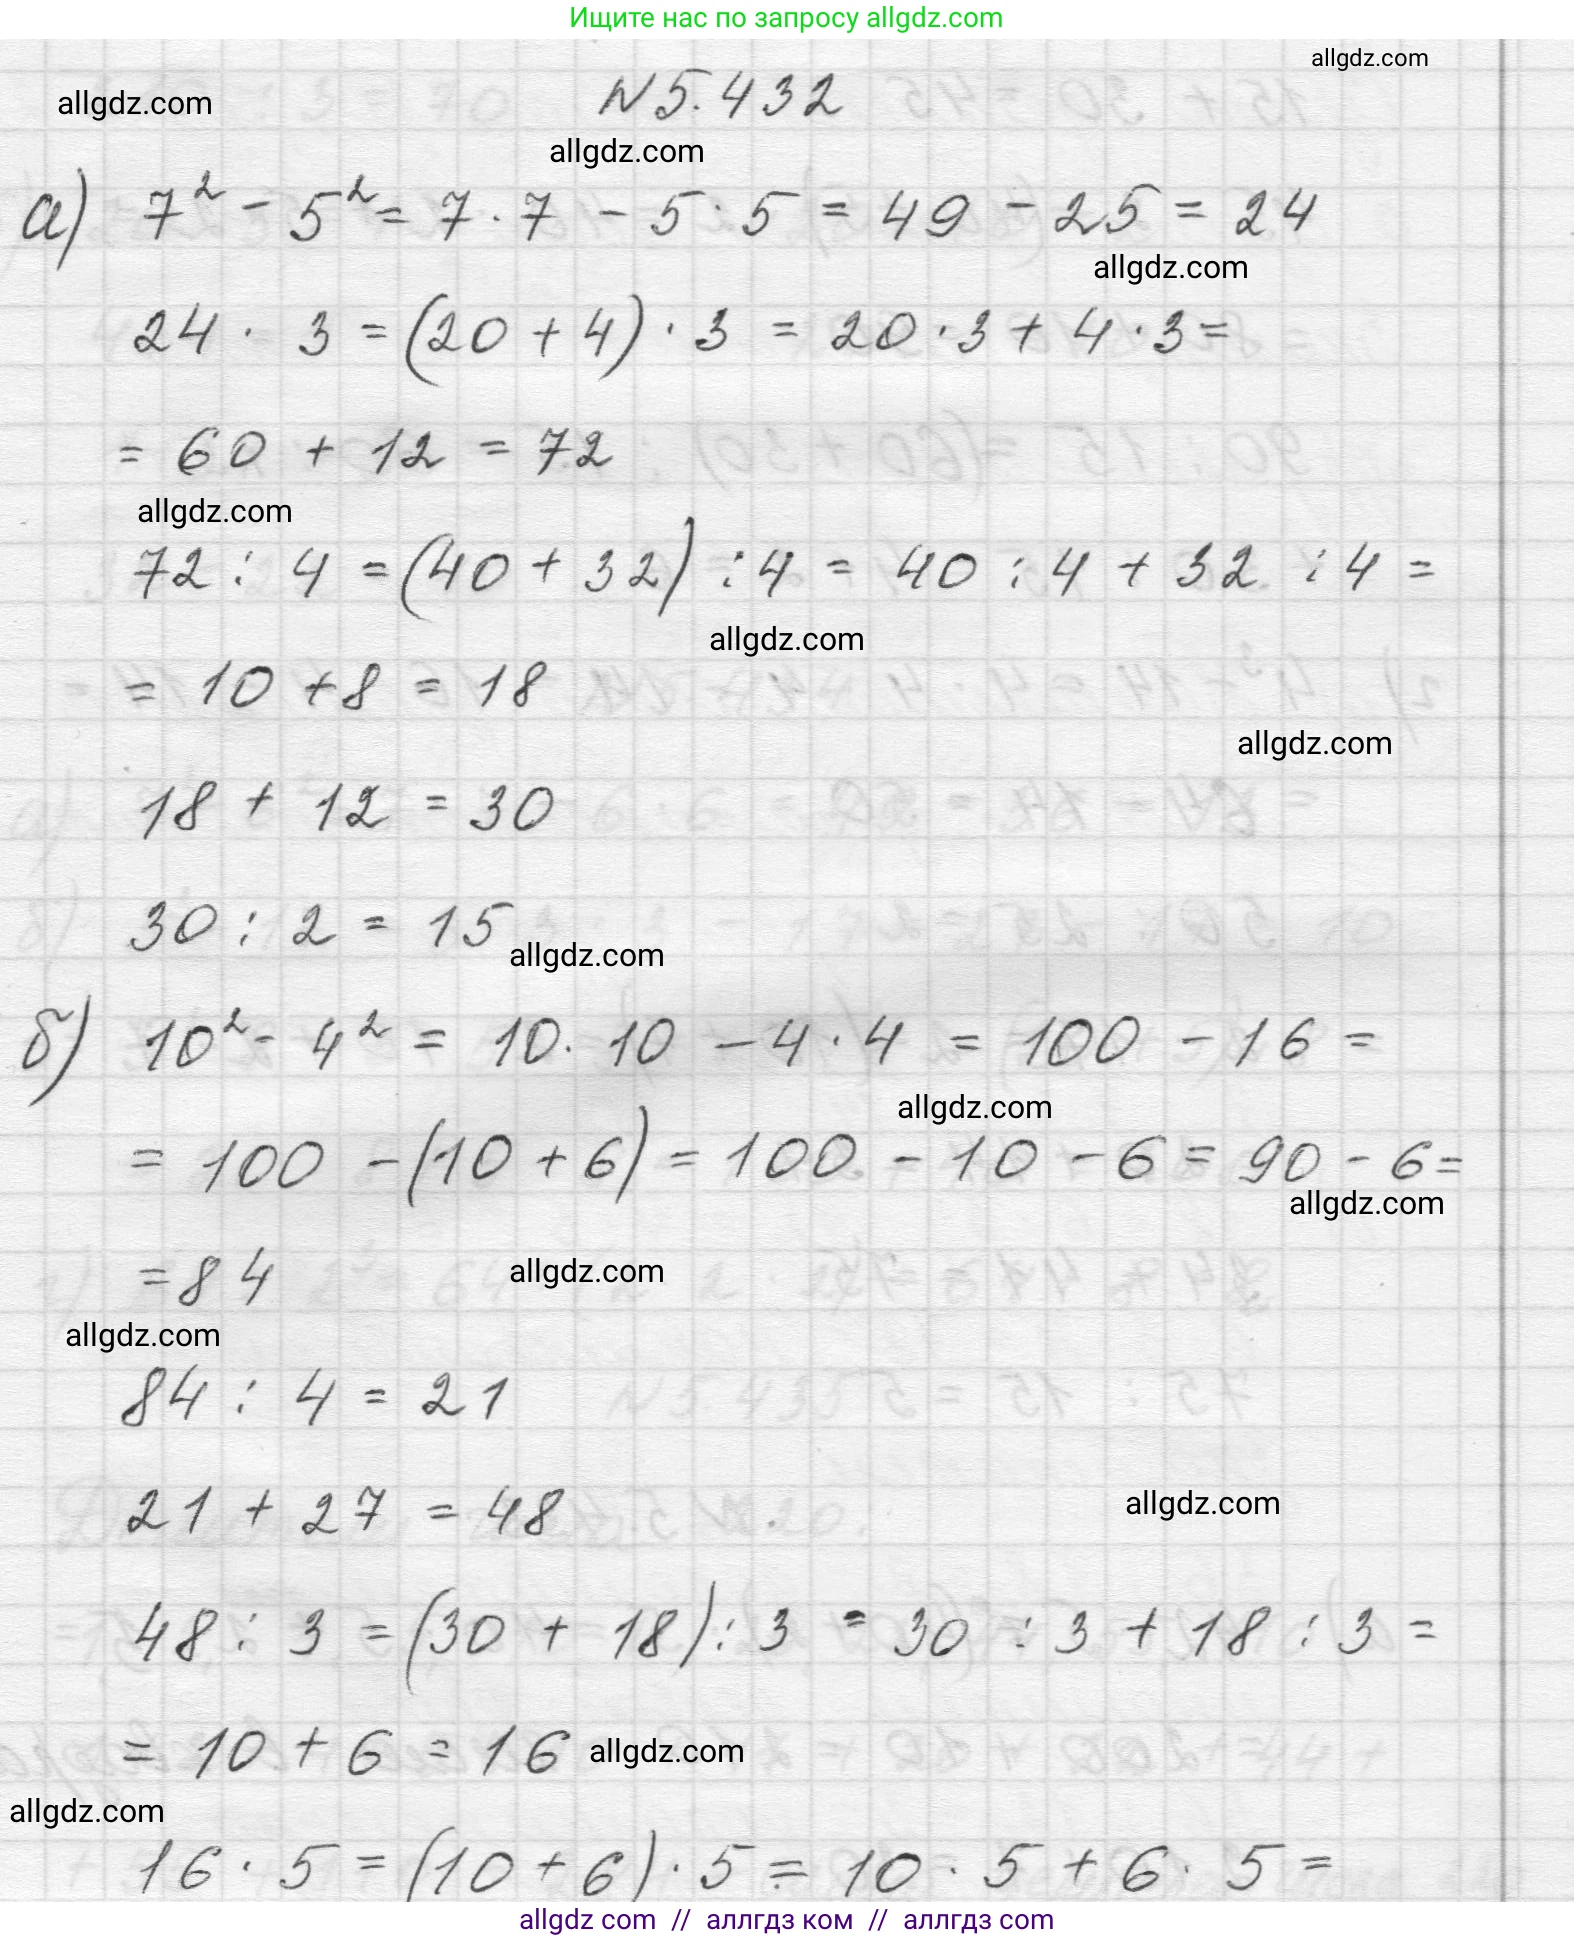 Ищите нас по запросу allgdz.com
allgdz.com
allgdz.com
N 5.432
allgdz.com
а) 7² - 5² = 7 · 7 - 5 · 5 = 49 - 25 = 24
allgdz.com
24 · 3 = (20 + 4) · 3 = 20 · 3 + 4 · 3 =
= 60 + 12 = 72
allgdz.com
72 : 4 = (40 + 32) : 4 = 40 : 4 + 32 : 4 =
allgdz.com
= 10 + 8 = 18
allgdz.com
18 + 12 = 30
30 : 2 = 15
allgdz.com
б) 10² - 4² = 10 · 10 - 4 · 4 = 100 - 16 =
allgdz.com
= 100 - (10 + 6) = 100 - 10 - 6 = 90 - 6 =
allgdz.com
= 84
allgdz.com
allgdz.com
84 : 4 = 21
21 + 27 = 48
allgdz.com
48 : 3 = (30 + 18) : 3 = 30 : 3 + 18 : 3 =
= 10 + 6 = 16
allgdz.com
allgdz.com
16 · 5 = (10 + 6) · 5 = 10 · 5 + 6 · 5 =
allgdz com // аллгдз ком // аллгдз com